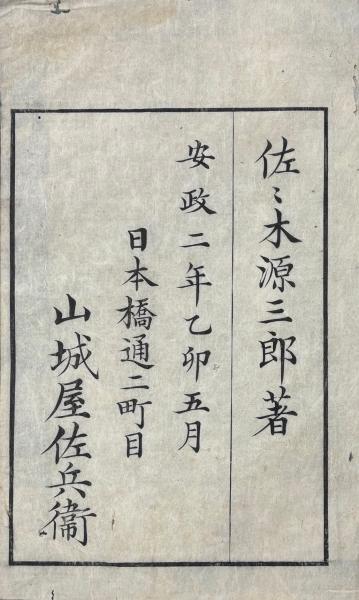 佐々木源三郎著
安政二年乙卯五月
日本橋通二町目
山城屋佐兵衞